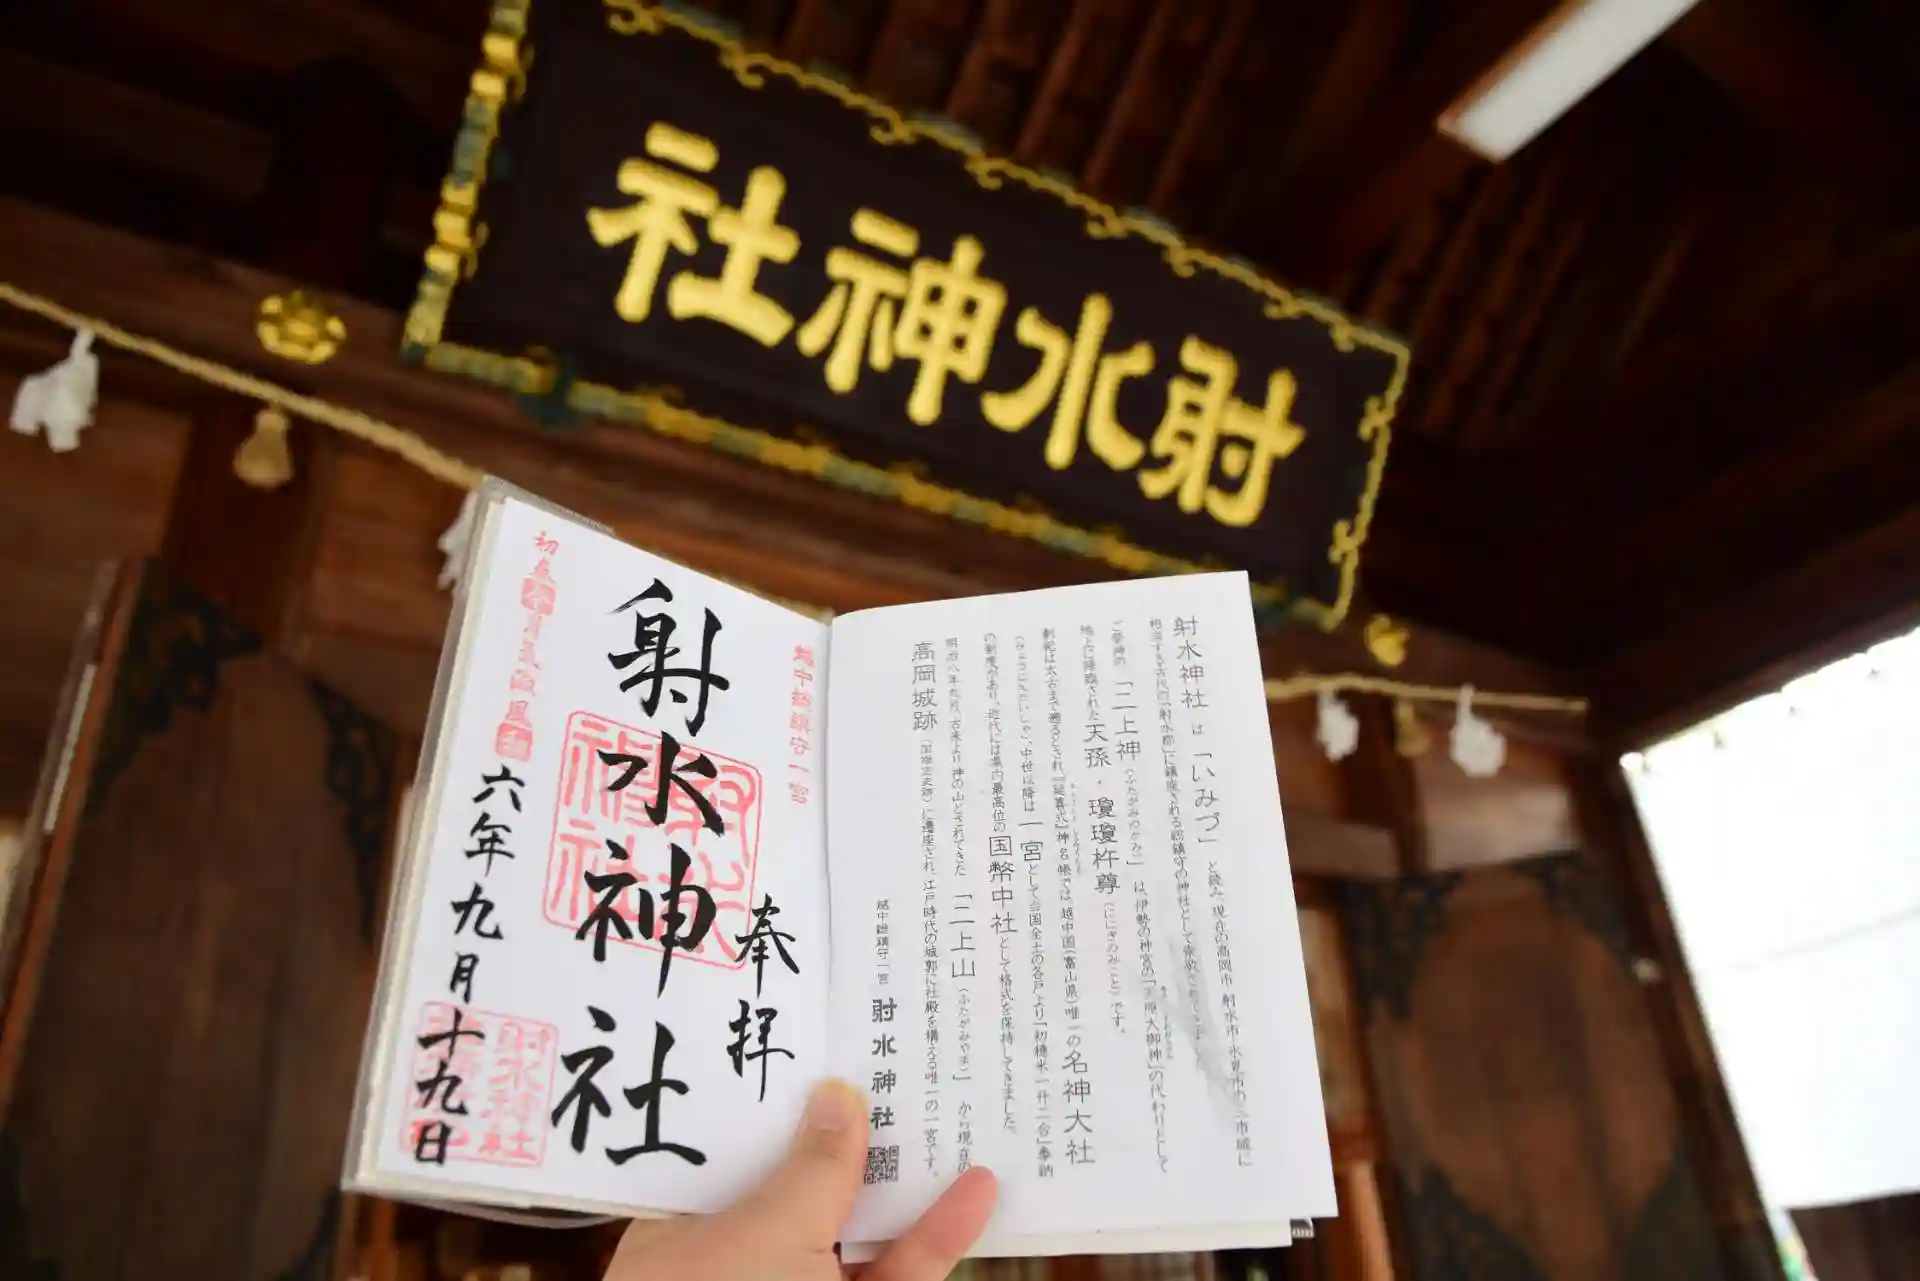 射水神社
越中総鎮守一宮
奉拝
射水神社
六年九月十九日
射水神社は「いみづ」と読み、現在の高岡市、射水市、氷見市の三市域に
相当する古代の「射水郡」に鎮座される総鎮守の神社として崇敬されてきました。
ご祭神の「二上神（ふたがみのかみ）」は、伊勢の神宮の「天照大御神」の代わりとして
地上に降臨された天孫・瓊瓊杵尊（ににぎのみこと）です。
創祀は太古まで遡るとされ、『延喜式』神名帳では、越中国（富山県）唯一の名神大社
（みょうじんたいしゃ）、中世以降は一宮として当国全土の各戸より「初穂米一升二合」奉納
の制度があり、近代には県内最高位の国幣中社として格式を保持してきました。
明治八年九月、古来より神の山とされてきた「二上山（ふたがみやま）」から現在の
高岡城跡（国指定史跡）に遷座され、江戸時代の城郭に社殿を構える唯一の一宮です。
越中総鎮守一宮 射水神社